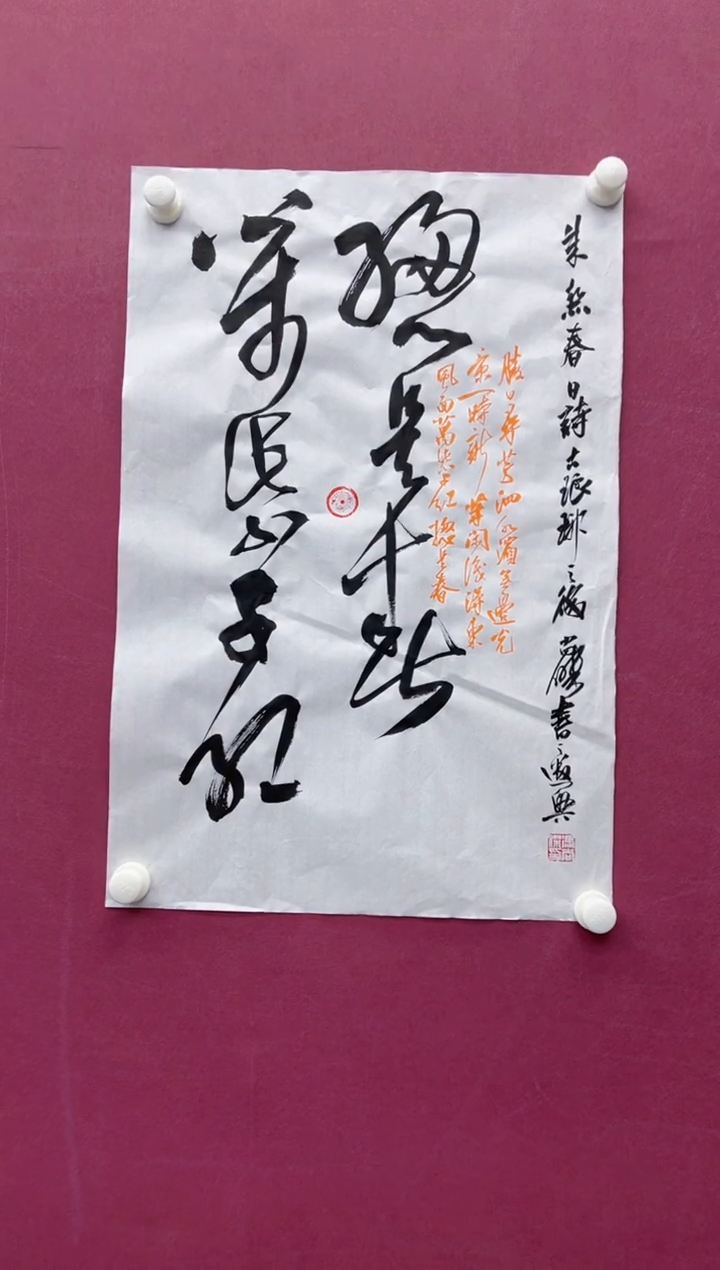 朱熹春日詩古琅琊之後
勝日尋芳泗水濱無邊光
景一時新等閒識得東
風面萬紫千紅總是春
總是
萬紫千紅